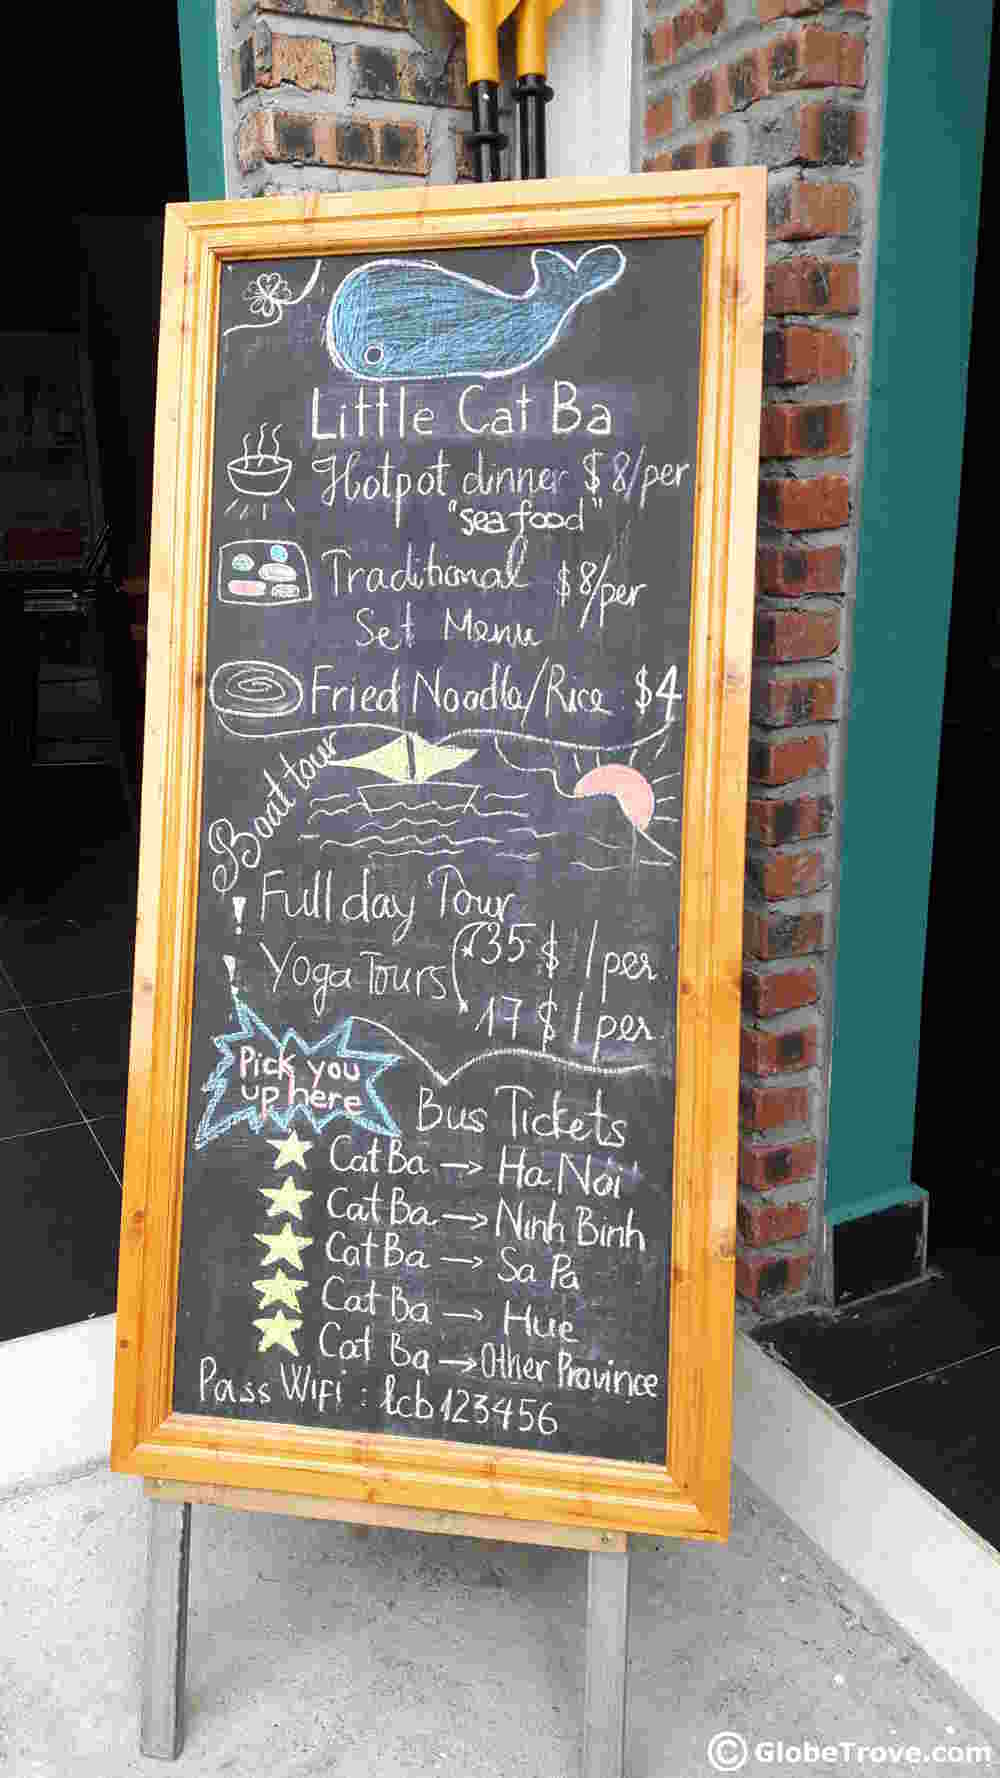 Little Cat Ba
Hotpot dinner $8/per
"sea food"
Traditional $8/per
Set Menu
Fried Noodle/Rice : $4
Boat tour
! Full day Tour
! Yoga Tours 35 $ /per
17 $ /per
Pick you
up here
Bus Tickets
Cat Ba → Ha Noi
Cat Ba → Ninh Binh
Cat Ba → Sa Pa
Cat Ba → Hue
Cat Ba → Other Province
Pass Wifi : lcb123456
© GlobeTrove.com